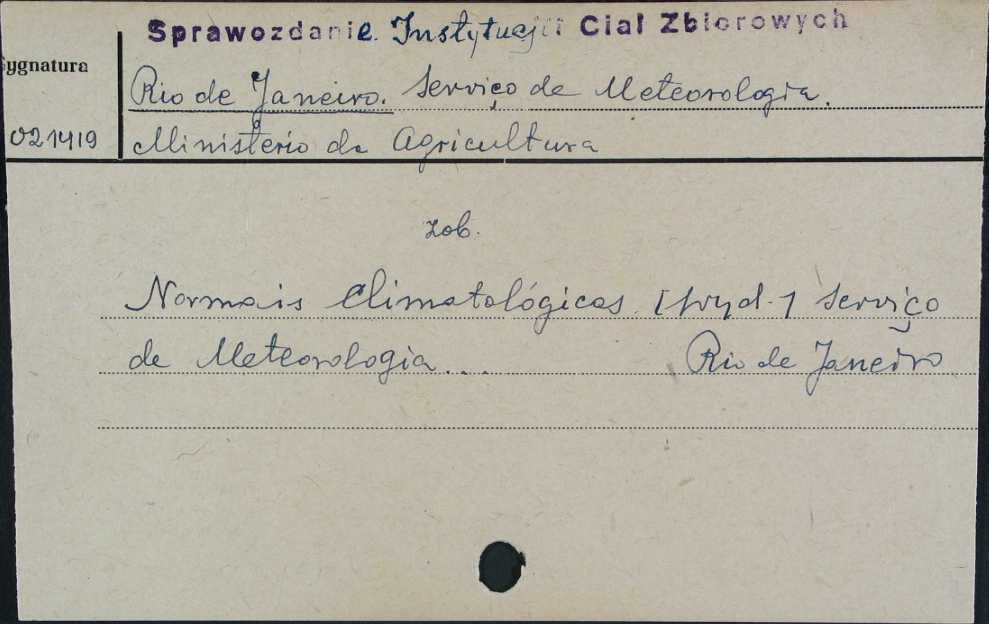 Sprawozdanie Instytucji i Ciał Zbiorowych
Sygnatura
Rio de Janeiro. Serviço de Meteorologia.
021419
Ministério da Agricultura
zob.
Normais Climatológicas. [Wyd.] Serviço
de Meteorologia... Rio de Janeiro